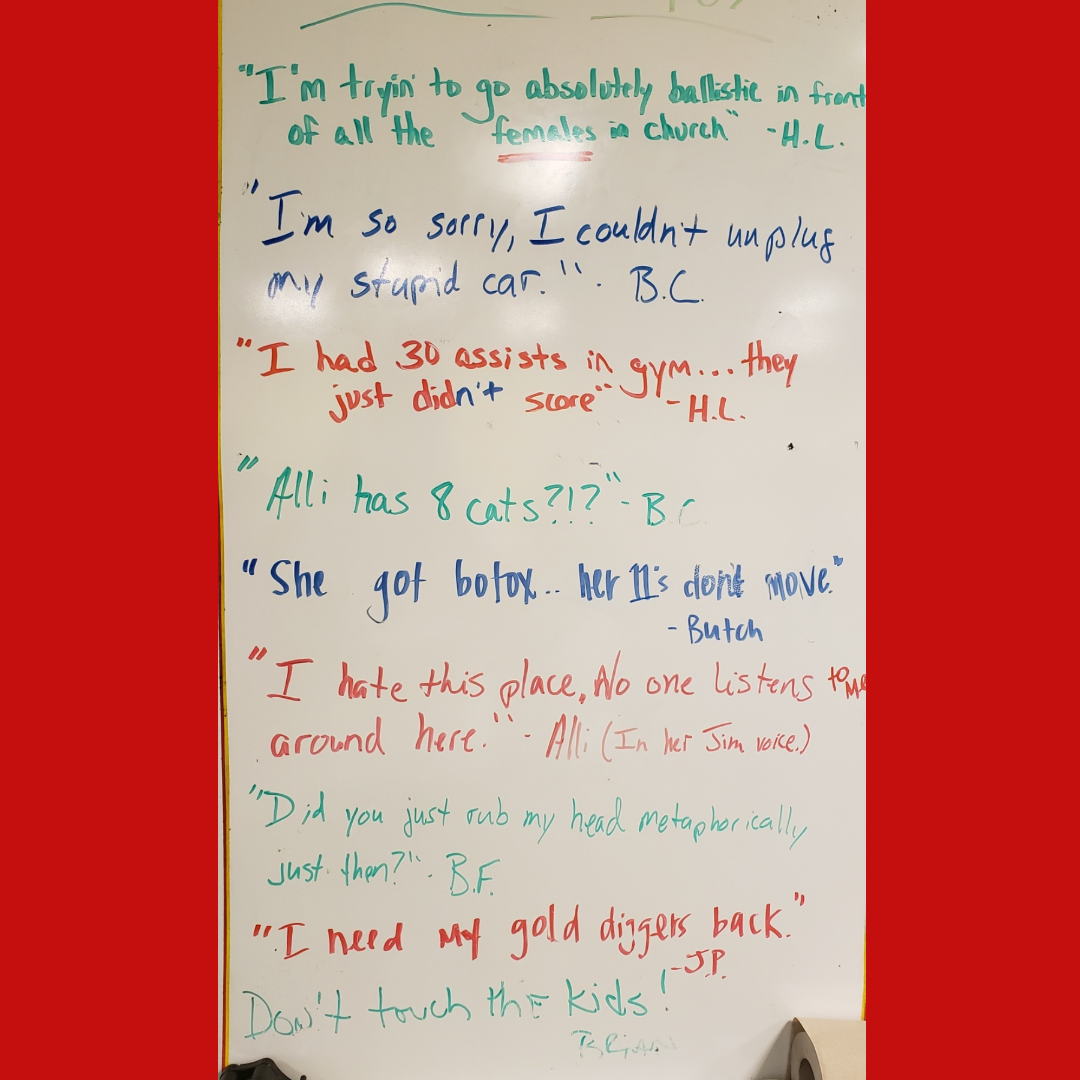 "I'm tryin' to go absolutely ballistic in front
of all the females in church" -H.L.
"I'm so sorry, I couldn't unplug
my stupid car." - B.C.
"I had 30 assists in gym... they
just didn't score" -H.L.
"Alli has 8 cats?!?" - B.C
"She got botox.. her 11's don't move."
- Butch
"I hate this place, No one listens to me
around here." - Alli (In her Jim voice.)
"Did you just rub my head metaphorically
just then?" - B.F.
"I need my gold diggers back."
-J.P.
Don't touch the kids!
BRIAN